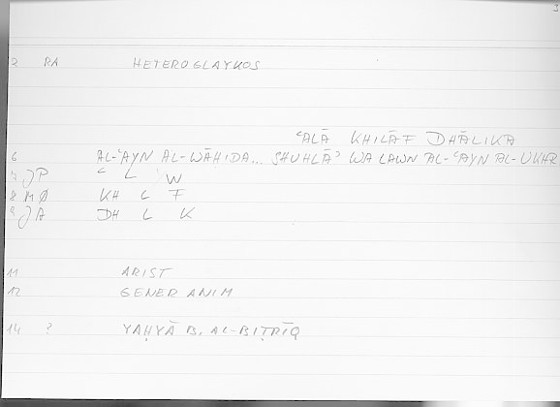 2 RA HETEROGLAYKOS
ʿALĀ KHILĀF DHĀLIKA
6 AL-ʿAYN AL-WĀḤIDA... SHUHLĀʾ WA LAWN AL-ʿAYN AL-UKHR
7 JP ʿ L W
8 MØ KH L F
9 JA DH L K
11 ARIST
12 GENER ANIM
14 ? YAḤYĀ B. AL-BIṬRĪQ